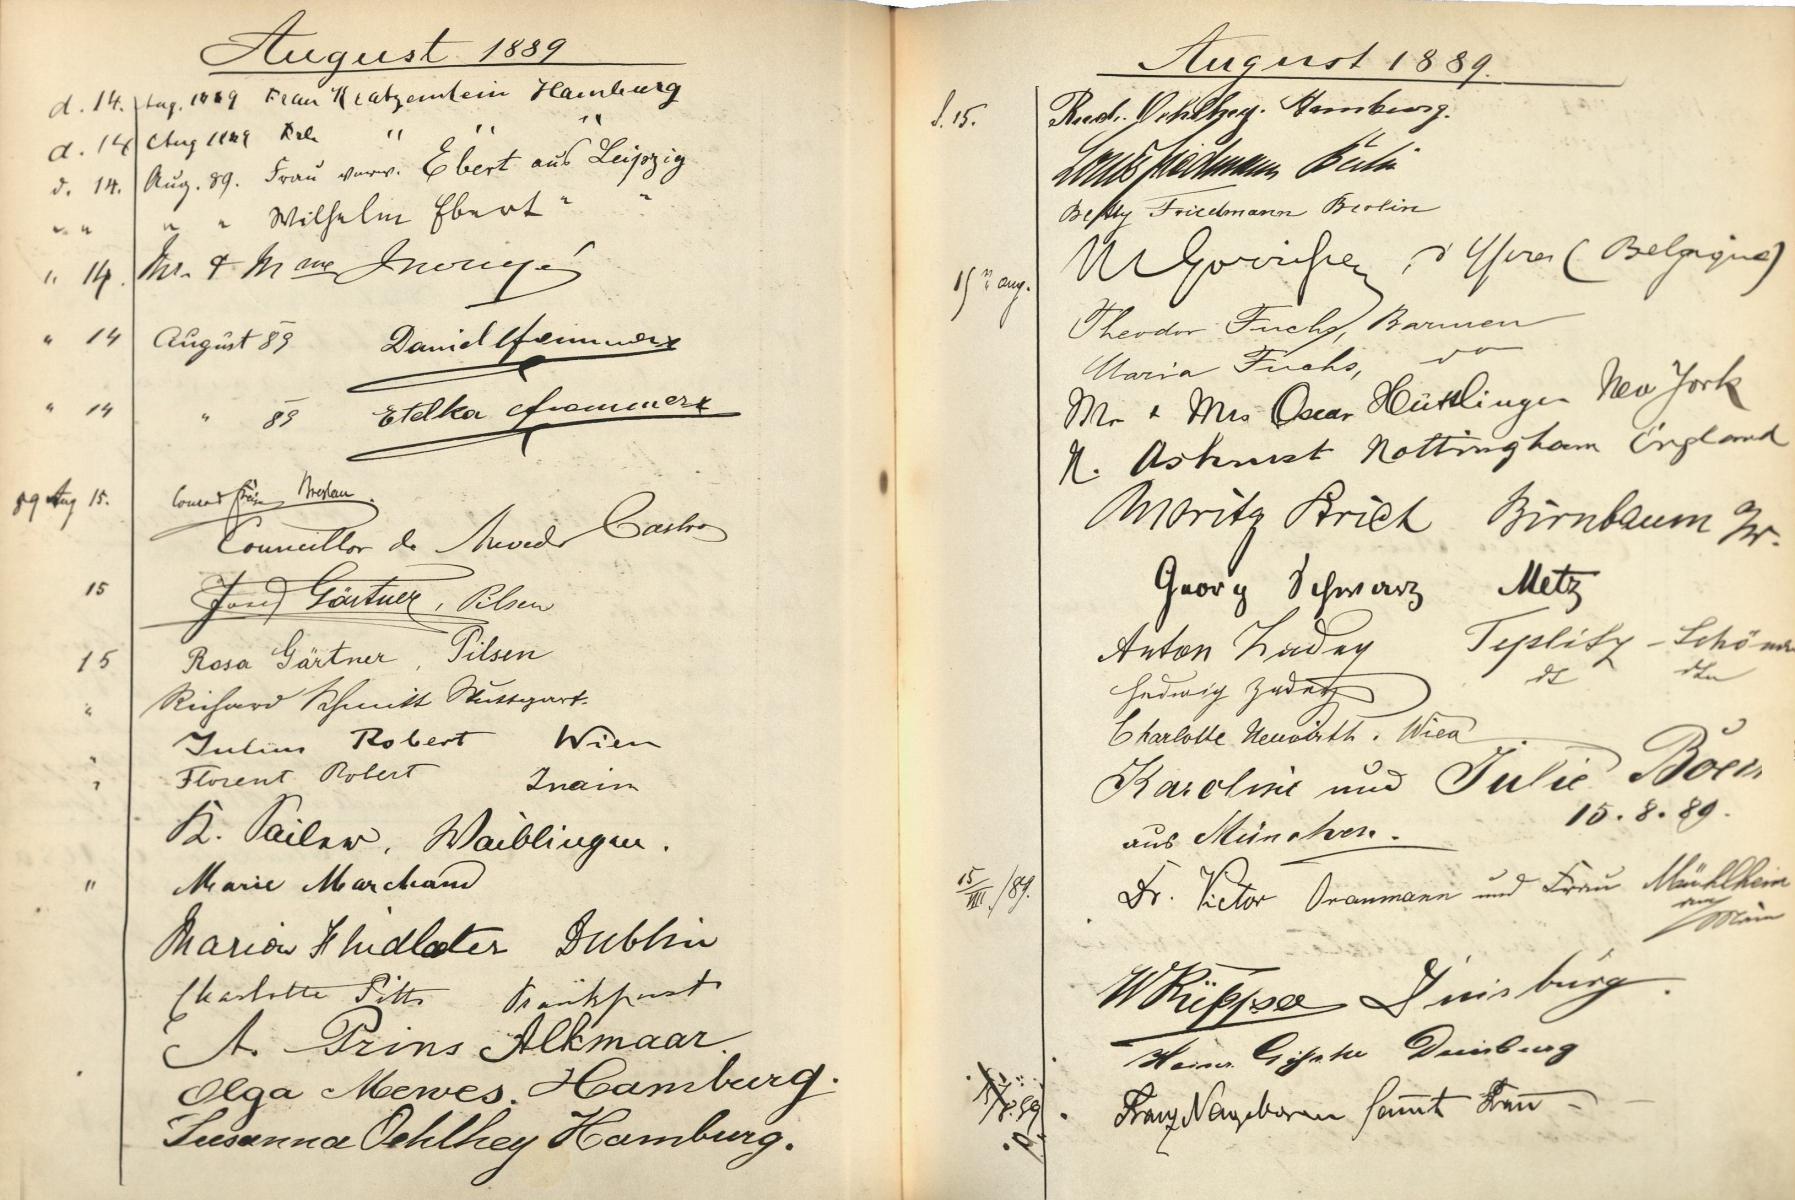 August 1889
d. 14. Aug. 1889 Frau Kratzenstein Hamburg
d. 14 Aug 1889 " " "
d. 14. Aug. 89. Frau verw. Ebert aus Leipzig
" " " " Wilhelm Ebert " "
" 14. Mr. & Mme
" 14 August 89 Daniel
" 14 " 89 Etelka
89 Aug 15. Conrad Breslau.
Councillor de Castro
15 Josef Gärtner, Pilsen
15 Rosa Gärtner, Pilsen
" Richard Schmitt Stuttgart.
" Julius Robert Wien
" Florent Robert Znaim
K. Waiblingen.
" Marie Marchand
Maria Dublin
Charlotte Pitts Frankfurt
A. Prins Alkmaar.
Olga Mewes. Hamburg.
Susanna Oehlhey Hamburg.
August 1889.
d. 15. Rud. Oehlhey. Hamburg.
Louis Friedmann Berlin
Betty Friedmann Berlin
15 aug. (Belgique)
Theodor Fuchs, Barmen
Maria Fuchs, do
Mr & Mrs Oscar Hüttlinger New York
N. Ashurst Nottingham England
Moritz Birnbaum
Georg Schwarz Metz
Anton Teplitz - Schönau
Hedwig dt dto
Charlotte Neuwirth. Wien
Karoline und Julie
aus München. 15. 8. 89.
15/VIII./89. Dr. Victor und Frau Mühlheim
am Main
W Duisburg.
Heinr. Duisburg
Franz samt Frau